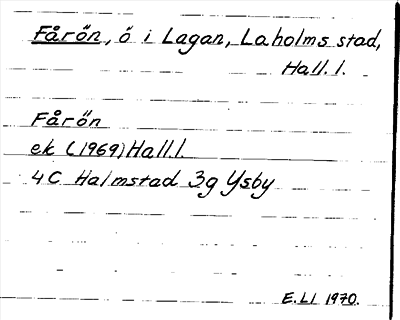 Fårön, ö i Lagan, Laholms stad,
Hall. l.
Fårön
ek (1969) Hall. l.
4C Halmstad 3g Ysby
E. LI 1970.